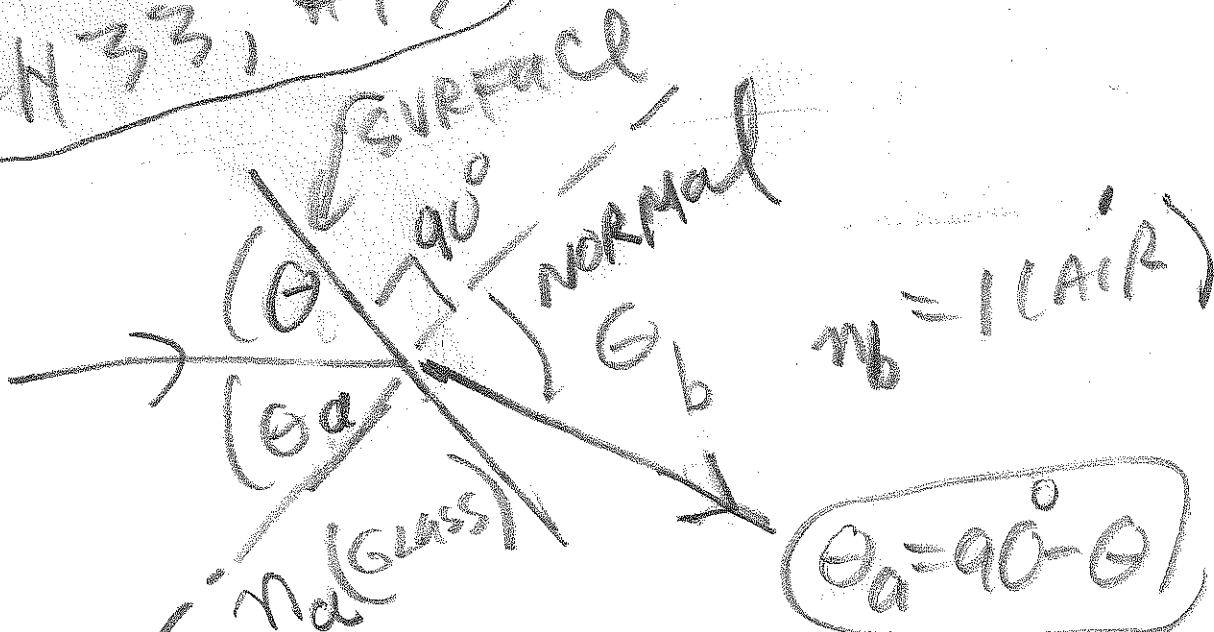 H33,
SURFACE
90°
NORMAL
θ
θb
nb = 1 (AIR)
θa
na (GLASS)
θa = 90° - θ